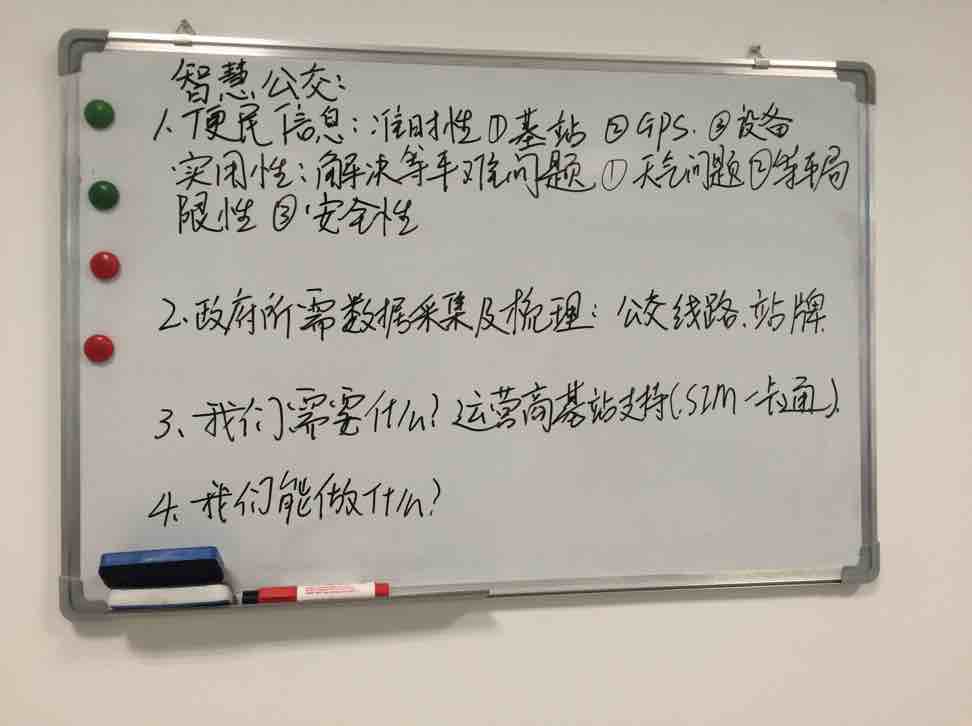 智慧公交:
1、便民信息:准时性①基站 ②GPS.③设备
实用性:解决等车难问题①天气问题②等车局
限性 ③安全性
2.政府所需数据采集及梳理:公交线路、站牌
3、我们需要什么?运营商基站支持(SIM一卡通).
4、我们能做什么?